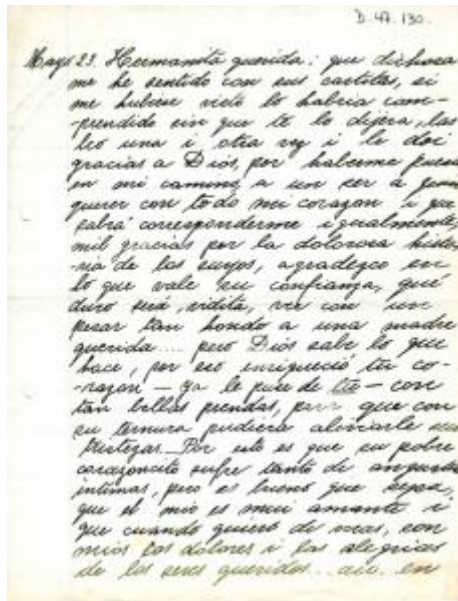 D.47.130.
Mayo 23. Hermanita querida: que dichosa
me he sentido con sus cartitas, si
me hubiese visto lo habria com-
-prendido sin que te lo dijera, las
leo una i otra vez i le doi
gracias a Dios, por haberme puesto
en mi camino a un ser a quien
querer con todo mi corazon i que
sabrá corresponderme igualmente;
mil gracias por la dolorosa histo-
-ria de los suyos, agradezco en
lo que vale su confianza, qué
duro será, vidita, ver con un
pesar tan hondo a una madre
querida.... pero Dios sabe lo que
hace, por eso enriqueció tu co-
-razon — ya le puse de tú — con
tan bellas prendas, para que con
su ternura pudiera aliviarle sus
tristezas. Por esto es que su pobre
corazoncito sufre tanto de angustias
intimas, pero es bueno que sepas,
que el mio es mui amante i
que cuando quiero de veras, son
mios los dolores i las alegrias
de los seres queridos... en